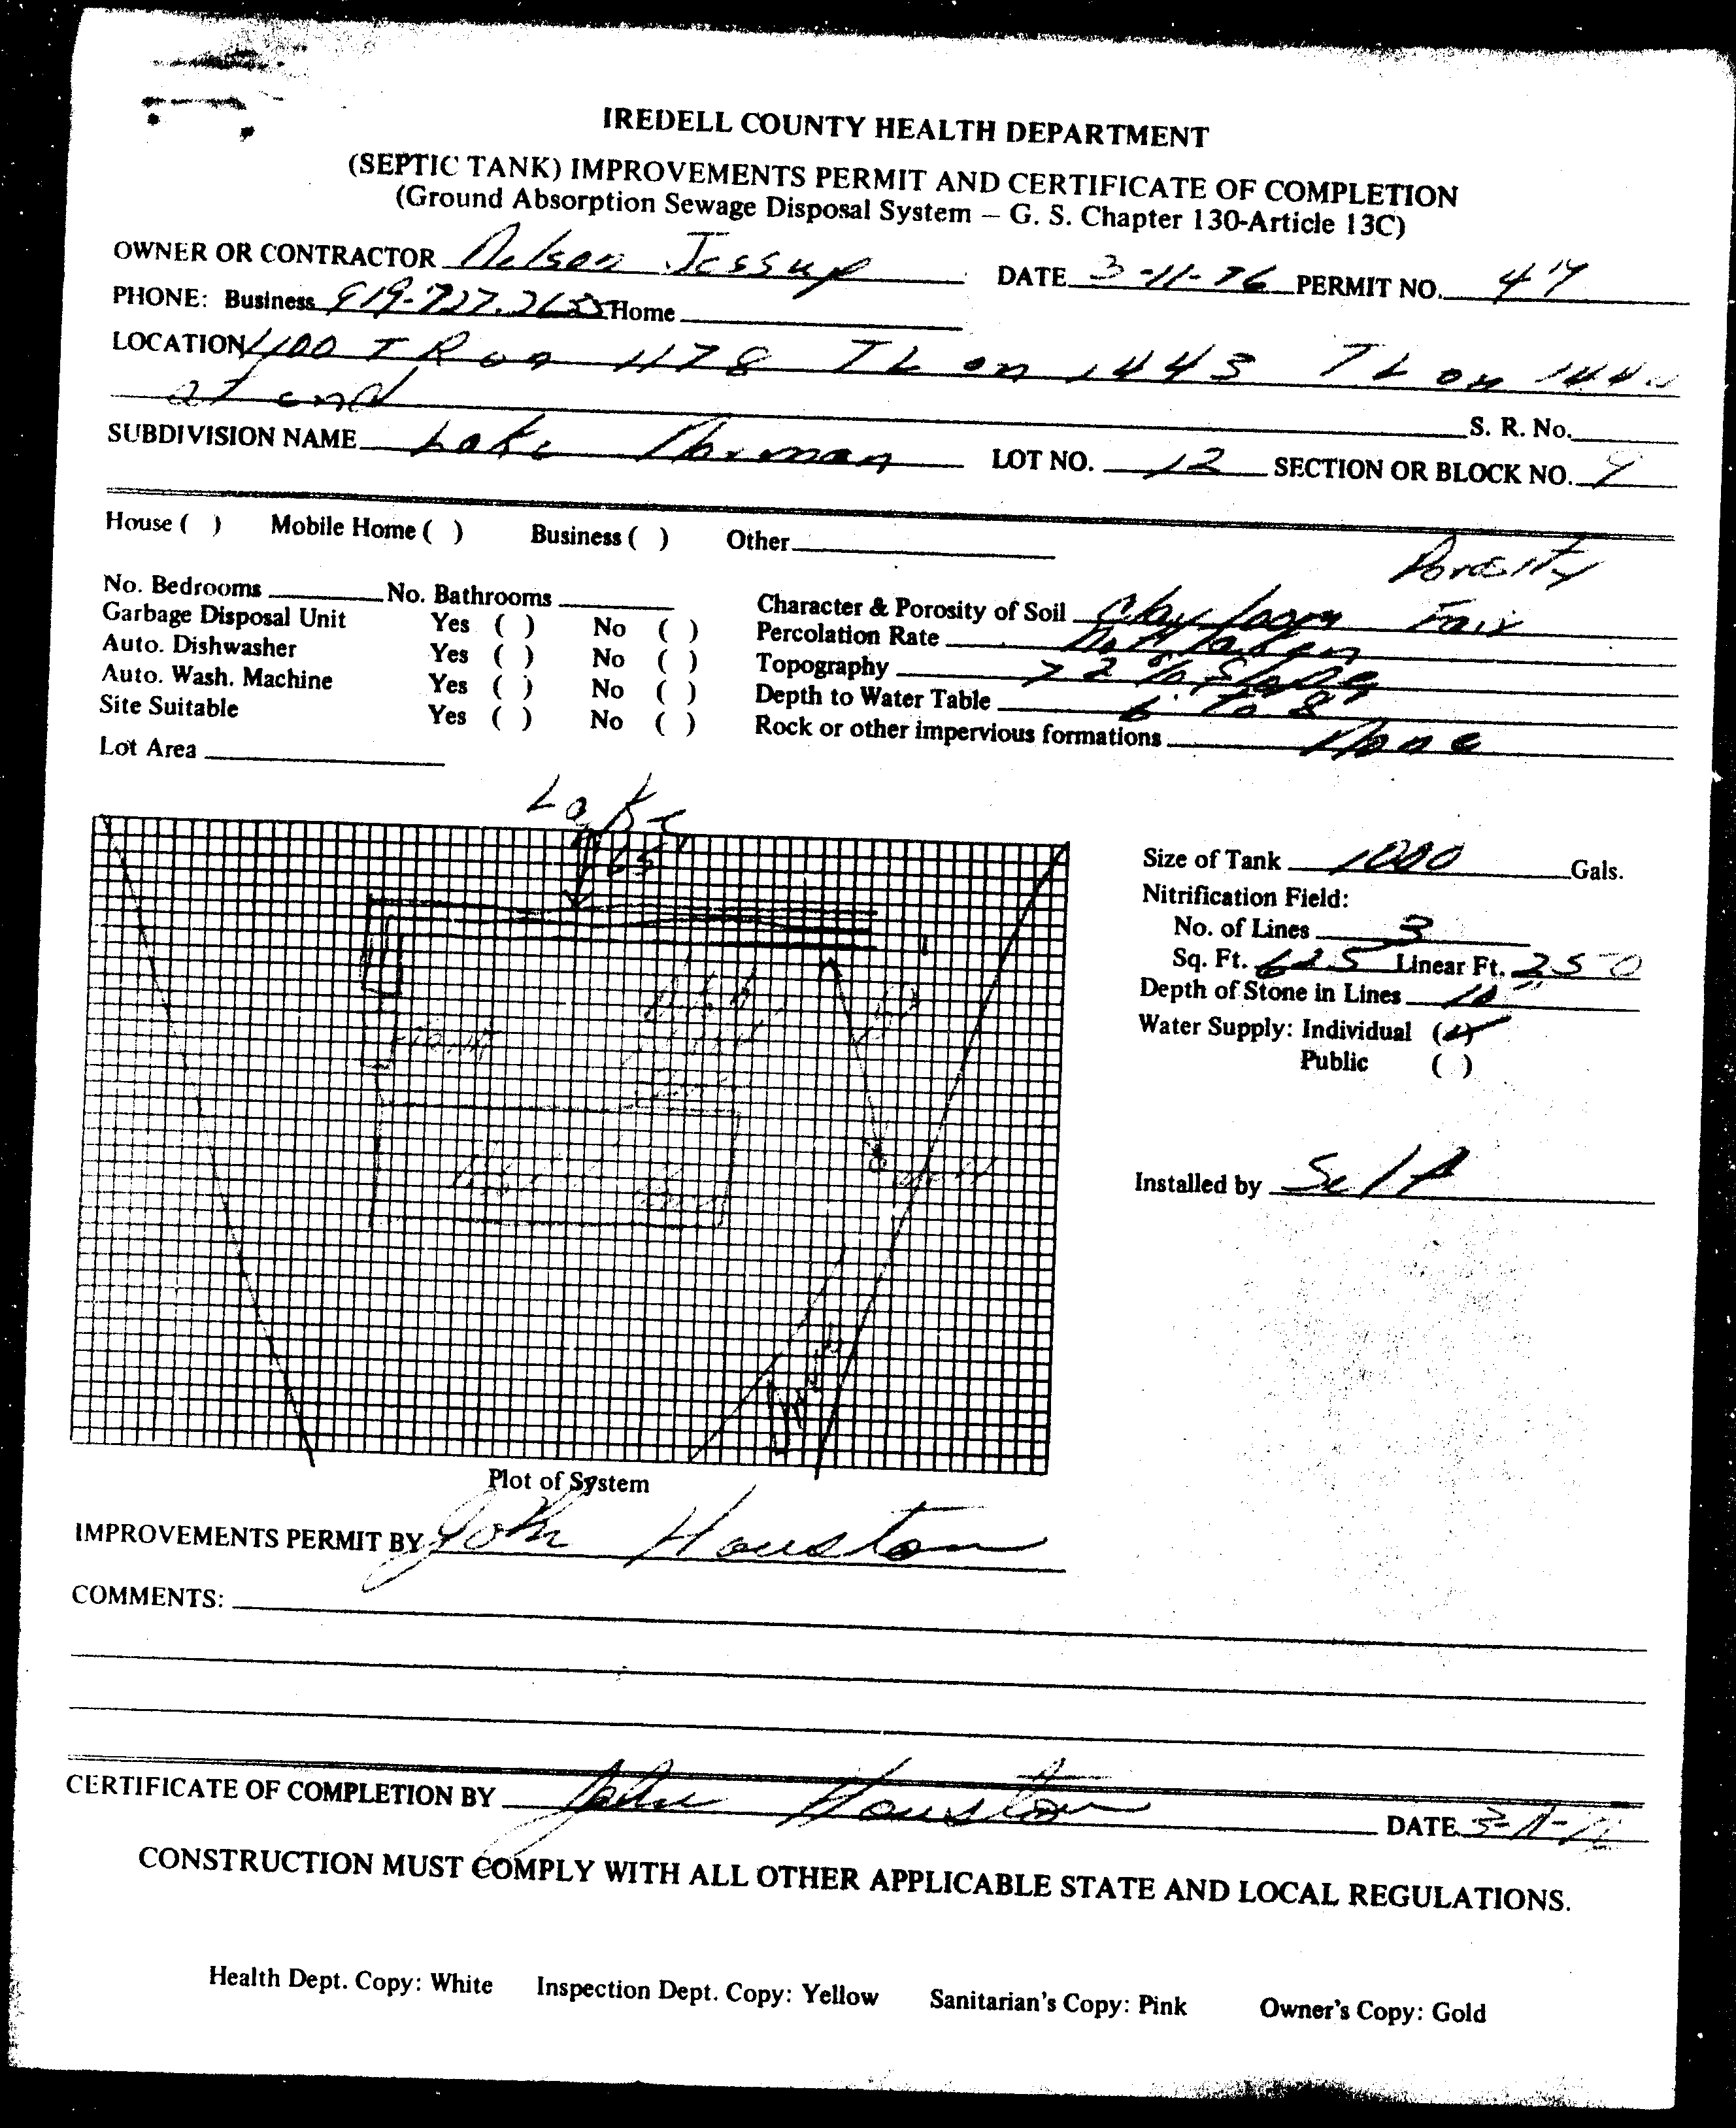 IREDELL COUNTY HEALTH DEPARTMENT
(SEPTIC TANK) IMPROVEMENTS PERMIT AND CERTIFICATE OF COMPLETION
(Ground Absorption Sewage Disposal System – G. S. Chapter 130-Article 13C)
OWNER OR CONTRACTOR Nelson Jessup DATE 3-11-76 PERMIT NO.
PHONE: Business Home
LOCATION 1100 T R on 1178 TL on 1443 TL on
at end S. R. No.
SUBDIVISION NAME Lake Norman LOT NO. 12 SECTION OR BLOCK NO. 9
House ( ) Mobile Home ( ) Business ( ) Other
Porosity
No. Bedrooms No. Bathrooms Character & Porosity of Soil Clay loam Fair
Garbage Disposal Unit Yes ( ) No ( ) Percolation Rate Not taken
Auto. Dishwasher Yes ( ) No ( ) Topography > 2 % slope
Auto. Wash. Machine Yes ( ) No ( ) Depth to Water Table 6' To 8'
Site Suitable Yes ( ) No ( ) Rock or other impervious formations None
Lot Area
Lake
65'
Size of Tank 1000 Gals.
Nitrification Field:
No. of Lines 3
Sq. Ft. 625 Linear Ft. 250
Depth of Stone in Lines 10"
Water Supply: Individual (✓)
Public ( )
Installed by Self
Plot of System
IMPROVEMENTS PERMIT BY John Houston
COMMENTS:
CERTIFICATE OF COMPLETION BY John Houston DATE
CONSTRUCTION MUST COMPLY WITH ALL OTHER APPLICABLE STATE AND LOCAL REGULATIONS.
Health Dept. Copy: White Inspection Dept. Copy: Yellow Sanitarian's Copy: Pink Owner's Copy: Gold